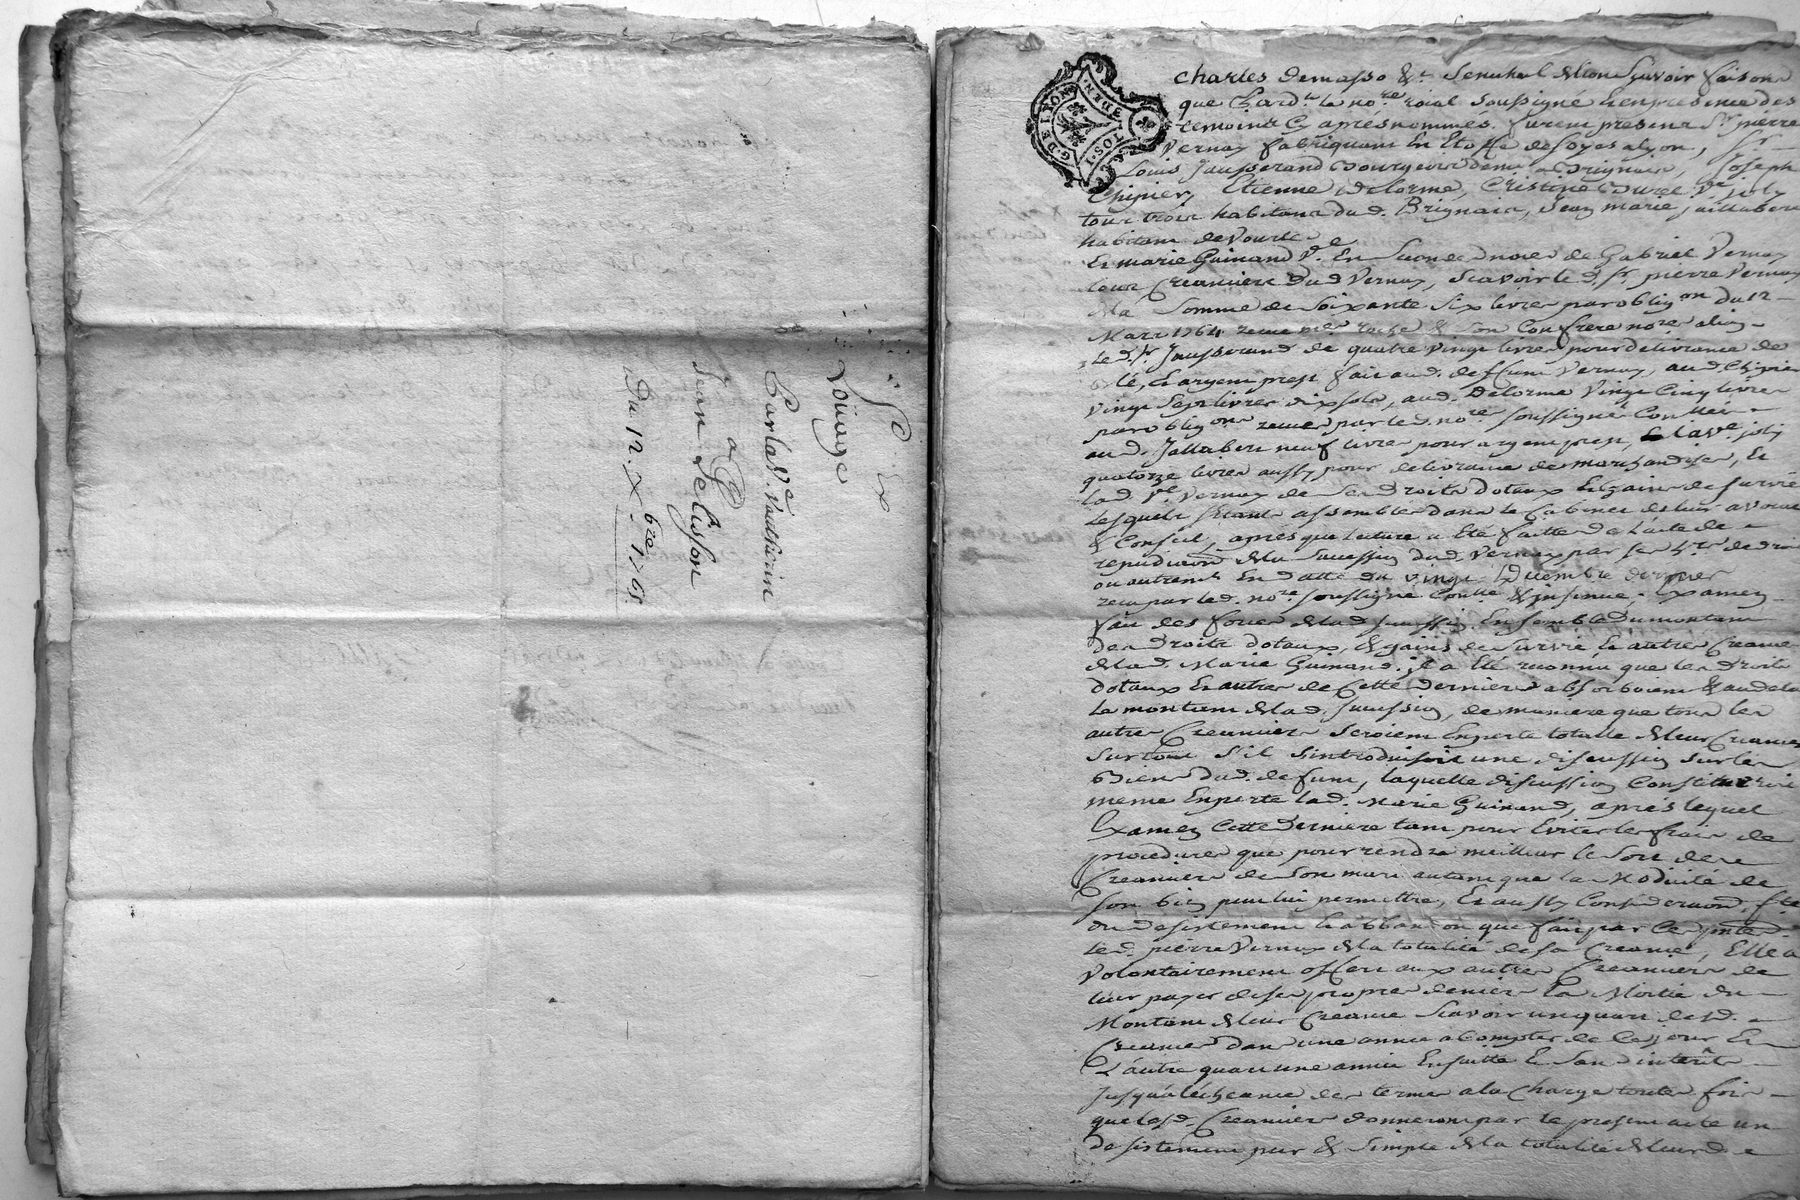 Ex
Loüage
Par la d. ve. Vauthierin
a
Jean Pelisson
Du 12. Xbre 1768
G. DE LYON
Charles Demasso &c. Senechal de Lion Sçavoir faisons
que Pard.t le no.re roial soussigné Et en presence des
temoins Cy aprés nommés. furent presens S.r pierre
Vernay fabriquant En Etoffe de soyes a lyon, S.r
Louis Jausserand Bourgeois de Brignais, Joseph
Chipier, Etienne delorme, Cristine Burel V.ve joly
tous trois habitans dud. Brignais, Jean marie jallabert
habitant de Vourle
Et marie Guinand V.ve En secondes noces de Gabriel Vernay
tous Creanciers dud Vernay, Scavoir le d. S.r pierre Vernay
de la Somme de Soixante Six livres par oblig.on du 12
Mars 1764 recue m.e roche & Son Confrere no.res a lion
le d. S.r Jausserand de quatre vingt livres pour delivrance de
blé, Et argent presté fait aud. deffunt Vernay, aud Chipier
vingt Sept livres dix sols, aud. Delorme Vingt Cinq livres
par oblig.ons recues par le d. no.re soussigné Conllées
au d. Jallabert neuf livres pour argent presté, Et la V.e joly
quatorze livres aussy pour delivrance de marchandises, Et
la d. V.e Vernay de Ses droits dotaux Et gains de survie
Lesquels Etants assemblés dans le Cabinet de leurs avocats
& Conseil, aprés que lecture a Eté faitte de l'acte de
repudiation de la Succession dud. Vernay par ses h.ers de droit
ou autrem.t En datte du vingt Decembre dernier
recu par le d. no.re soussigné Contllé & insinué, Examen
fait des forces de la d. succession Ensemble du montant
des droits dotaux, & gains de survie Et autres Creances
de la d. Marie Guinand, jl a Eté reconnu que les droits
dotaux Et autres de Cette derniere absorboient & au dela
le montant de la d. succession, de maniere que tous les
autres Creanciers Seroient En perte totalle de leurs Creances
Sur tout S'il S'introduisoit une discussion Sur les
Biens dud. defunt, laquelle discussion Constitueroit
meme En perte lad. Marie Guinand, aprés lequel
Examen Cette Derniere tant pour Eviter les frais de
procedures que pour rendre meilleur le sort des
Creanciers de Son mari autant que la Modicité de
son bien peut lui permettre, Et aussy Consideration
du desistement Et abbandon que fait par Ces pntes
led. pierre Vernay de la totalité de sa Creance, Elle a
Volontairement offert aux autres Creanciers de
leur payer de ses propres deniers La Moitié du
Montant de leur Creance Scavoir un quart des d.
Creances dans une année a Compter de Ce jour Et
L'autre quart une année Ensuitte Et Sans interêts
Jusqu'a l'écheance des termes a la Charge toutes fois
que les d. Creanciers donneront par le present acte un
desistement pur & Simple de la totalité de leur d.